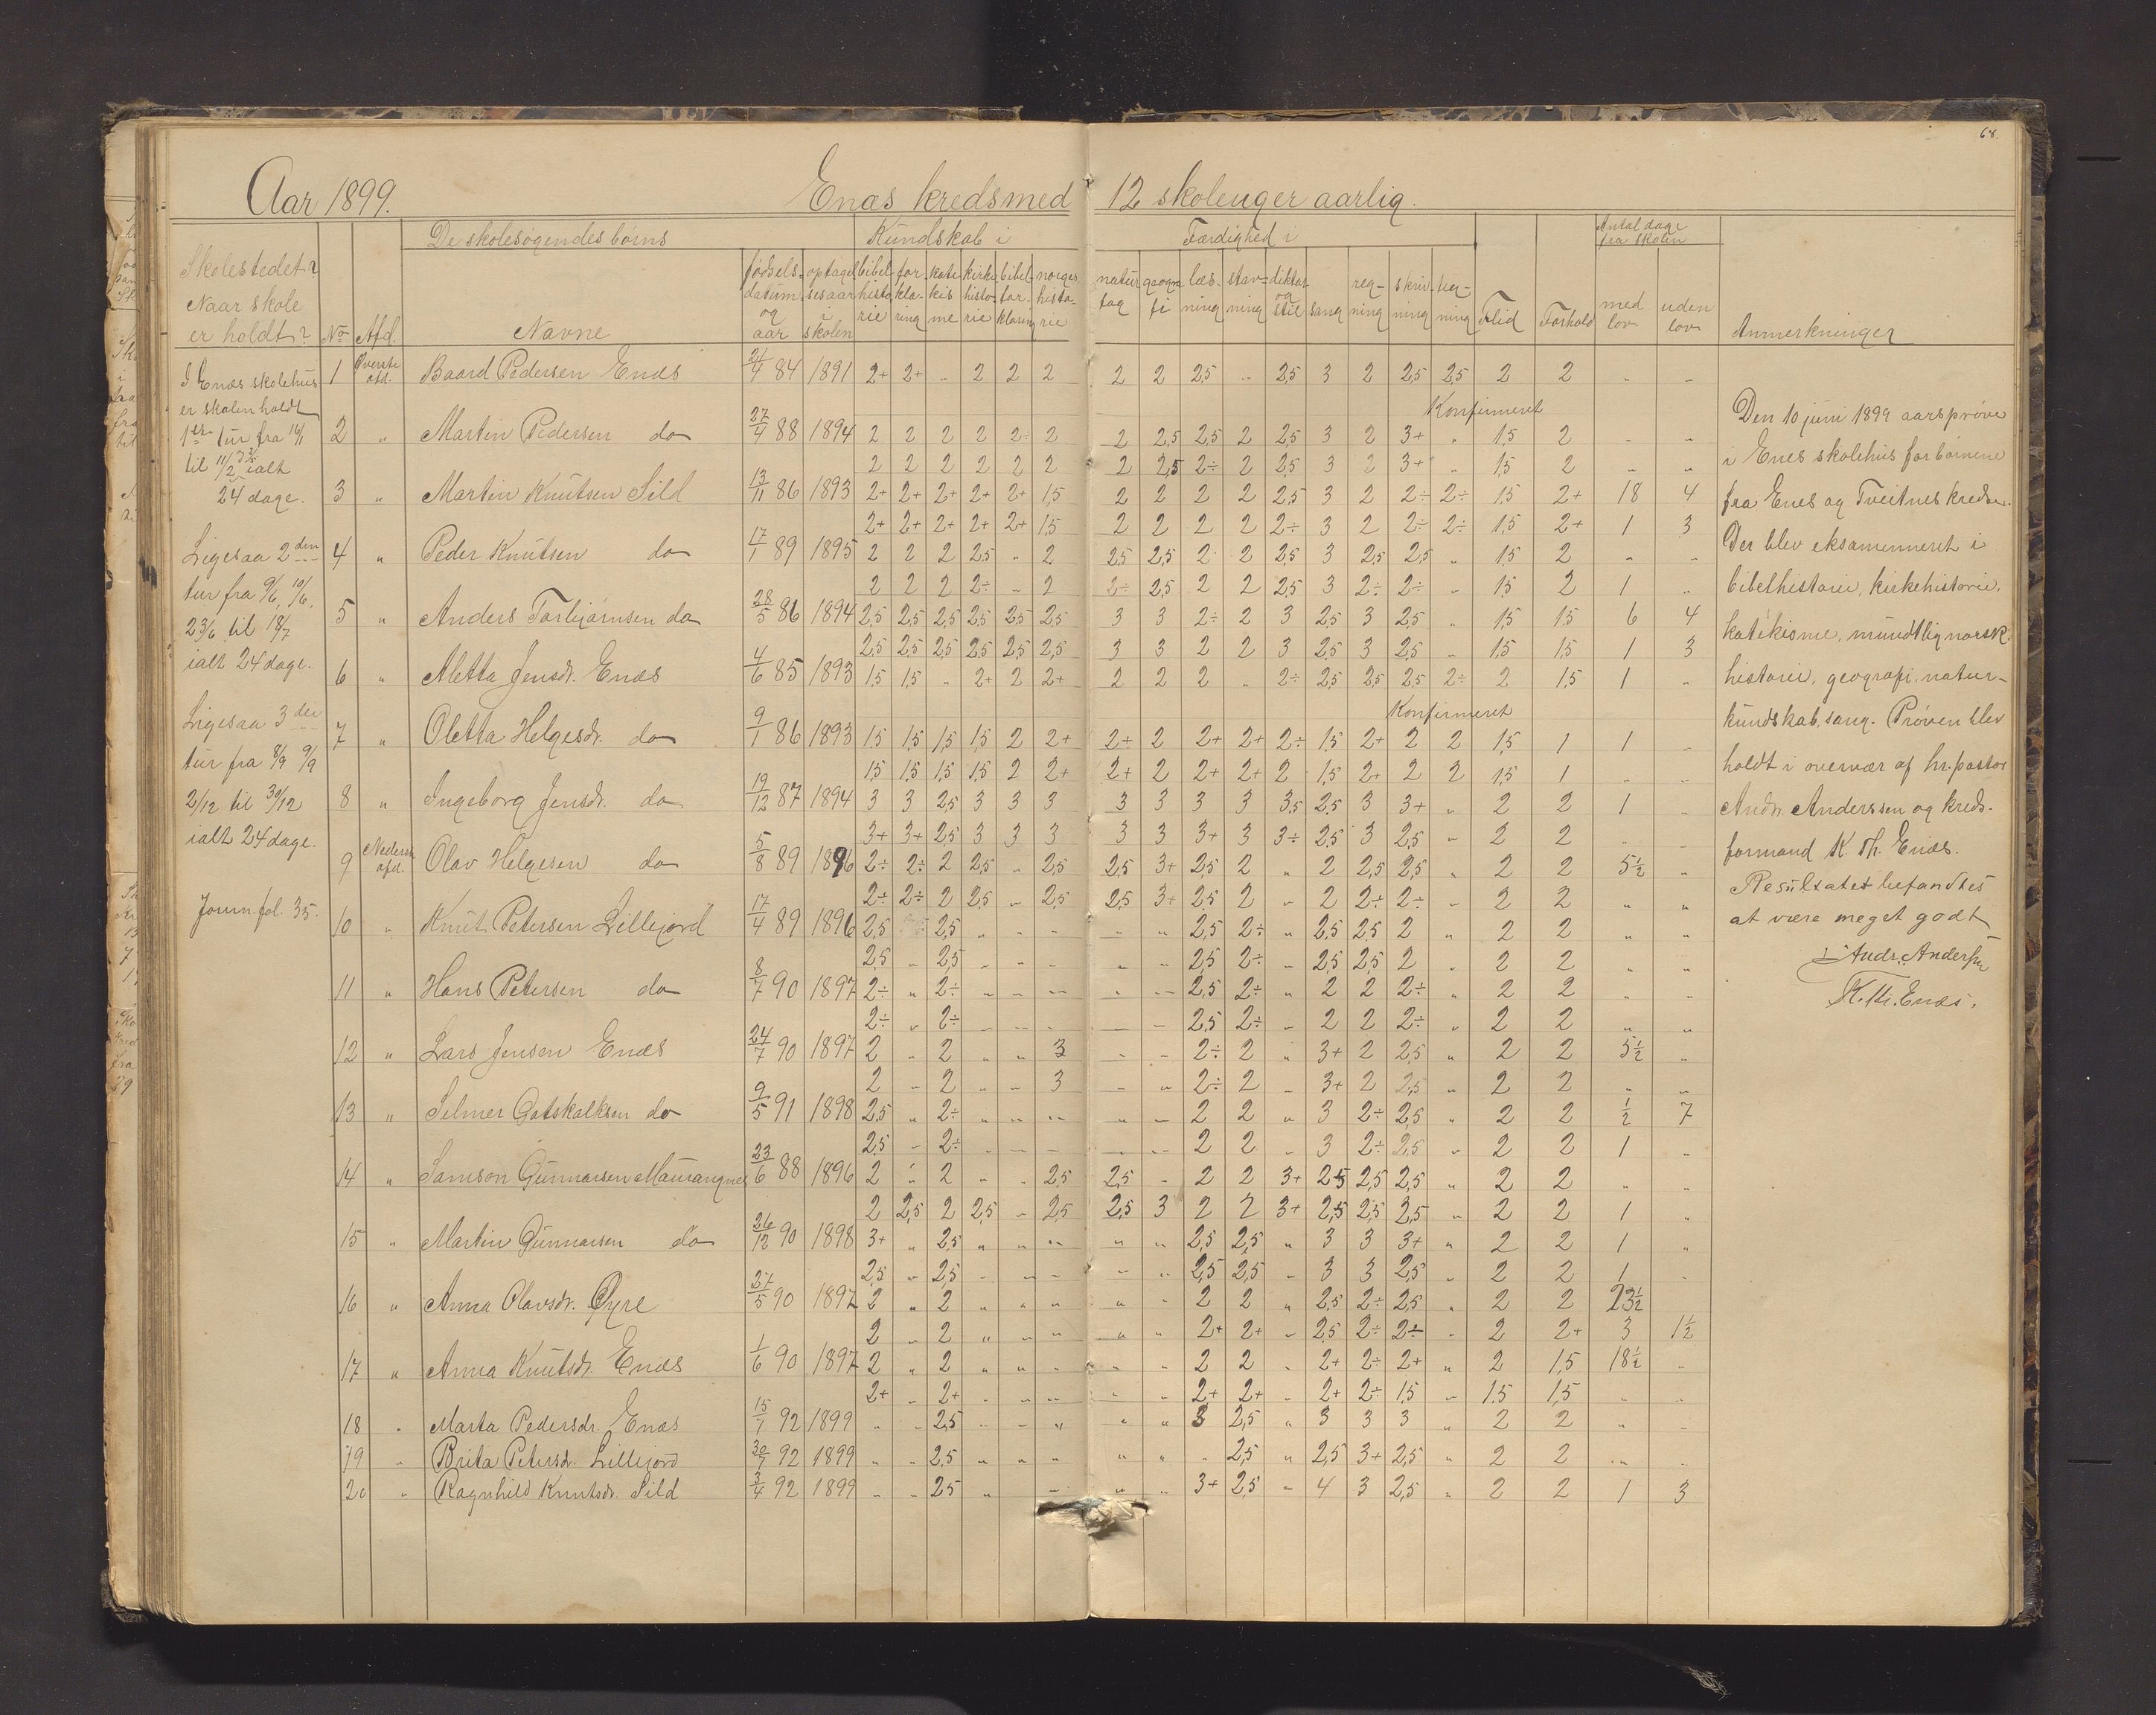 68.
Aar 1899. Enæs kreds med 12 skoleuger aarlig.
De skolesøgendes børns Kundskab i Færdighed i Antal dage fra skolen
Skolestedet? Naar skole er holdt? No Afd. Navne fødsels- datum og aar optagelsesaar i skolen bibelhistorie forklaring katekisme kirkehistorie bibelforklaring norgeshistorie naturfag geografi læsning stavning diktat og stil sang regning skrivning tegning Flid Forhold med lov uden lov Anmerkninger
1 Øverste afd. Baard Pedersen Enæs 21/4 84 1891 2+ 2+ „ 2 2 2 2 2 2,5 „ 2,5 3 2 2,5 2,5 2 2 „ „
Konfirmeret
2 „ Martin Pedersen do 27/4 88 1894 2 2 2 2 2÷ 2 2 2,5 2,5 2 2,5 3 2 3+ „ 1,5 2 „ „
2 2 2 2 2 2 2 2,5 2÷ 2 2,5 3 2 3+ „ 1,5 2 „ „
3 „ Martin Knutsen Sild 13/11 86 1893 2+ 2+ 2+ 2+ 2+ 1,5 2 2 2 2 2,5 3 2 2÷ 2÷ 1,5 2+ 18 4
2+ 2+ 2+ 2+ 2+ 1,5 2 2 2 2 2÷ 3 2 2÷ 2÷ 1,5 2+ 1 3
4 „ Peder Knutsen do 17/1 89 1895 2 2 2 2,5 „ 2 2,5 2,5 2 2 2,5 3 2,5 2,5 „ 1,5 2 „ „
2 2 2 2÷ „ 2 2÷ 2,5 2 2 2,5 3 2÷ 2÷ „ 1,5 2 1 „
5 „ Anders Torbjørnsen do 28/5 86 1894 2,5 2,5 2,5 2,5 2,5 2,5 3 3 2÷ 2 3 2,5 3 2,5 „ 1,5 1,5 6 4
2,5 2,5 2,5 2,5 2,5 2,5 3 3 2 2 3 2,5 3 2,5 „ 1,5 1,5 1 3
6 „ Aletta Jensdr. Enæs 4/6 85 1893 1,5 1,5 „ 2+ 2 2+ 2 2 2 „ 2÷ 2,5 2,5 2,5 2÷ 2 1,5 1 „
Konfirmeret
7 „ Oletta Helgesdr. do 9/1 86 1893 1,5 1,5 1,5 1,5 2 2+ 2+ 2 2+ 2+ 2÷ 1,5 2+ 2 2 1,5 1 1 „
1,5 1,5 1,5 1,5 2 2+ 2+ 2 2+ 2+ 2 1,5 2+ 2 2 1,5 1 „ „
8 „ Ingeborg Jensdr. do 19/12 87 1894 3 3 2,5 3 3 3 3 3 3 3 3,5 2,5 3 3+ „ 2 2 1 „
3+ 3+ 2,5 3 3 3 3 3 3+ 3 3÷ 2,5 3 2,5 „ 2 2 „ „
9 Nederste afd. Olav Helgesen do 5/8 89 1896 2÷ 2÷ 2 2,5 „ 2,5 2,5 3+ 2,5 2 „ 2 2,5 2,5 „ 2 2 5½ „
2÷ 2÷ 2 2,5 „ 2,5 2,5 3+ 2,5 2 „ 2 2÷ 2÷ „ 2 2 „ „
10 „ Knut Petersen Lillejord 17/4 89 1896 2,5 2,5 „ „ „ „ „ 2,5 2÷ „ 2,5 2,5 2 „ 2 2 „ „
2,5 „ 2,5 „ „ „ „ „ 2,5 2÷ „ 2,5 2,5 2 „ 2 2 „ „
11 „ Hans Petersen do 8/7 90 1897 2÷ „ 2÷ „ „ „ „ „ 2,5 2÷ „ 2 2 2÷ „ 2 2 „ „
2÷ „ 2÷ „ „ „ „ „ 2,5 2÷ „ 2 2 2÷ „ 2 2 „ „
12 „ Lars Jensen Enæs 24/7 90 1897 2 „ 2 „ „ 3 „ „ 2÷ 2 „ 3+ 2 2,5 „ 2 2 5½ „
2 „ 2 „ „ 3 „ „ 2÷ 2 „ 3+ 2 2,5 „ 2 2 „ „
13 „ Selmer Gotskalksen do 9/5 91 1898 2,5 „ 2÷ „ „ „ „ „ 2 2 „ 3 2÷ 2,5 „ 2 2 ½ 7
2,5 „ 2÷ „ „ „ „ „ 2 2 „ 3 2÷ 2,5 „ 2 2 1 „
14 „ Samson Gunnarsen Maurangnes 23/6 88 1896 2 „ 2 „ „ 2,5 2,5 „ 2 2 3+ 2,5 2,5 2,5 „ 2 2 „ „
2 2,5 2 2,5 „ 2,5 2,5 3 2 2 3+ 2,5 2,5 2,5 „ 2 2 1 „
15 „ Martin Gunnarsen do 26/12 90 1898 3+ „ 2,5 „ „ „ „ „ 2,5 2,5 „ 3 3 3+ „ 2 2 1 „
2,5 „ 2,5 „ „ „ „ „ 2,5 2,5 „ 3 3 2,5 „ 2 2 1 „
16 „ Anna Olavsdr. Øyre 27/5 90 1897 2 „ 2 „ „ „ „ „ 2 2 „ 2,5 2÷ 2,5 „ 2 2 23½
2 „ 2 „ „ „ „ „ 2+ 2+ „ 2,5 2÷ 2÷ „ 2 2+ 3 1½
17 „ Anna Knutsdr. Enæs 1/6 90 1897 2 „ 2 „ „ „ „ „ 2 2 „ 2+ 2÷ 2+ „ 2 1,5 18½ „
2+ „ 2+ „ „ „ „ „ 2+ 2+ „ 2+ 2÷ 1,5 „ 1,5 1,5 „ „
18 „ Marta Pedersdr. Enæs 15/1 92 1899 „ „ 2,5 „ „ „ „ „ 3 2,5 „ 3 3 3 „ 2 2 „ „
19 „ Brita Petersdr. Lillejord 30/7 92 1899 „ „ 2,5 „ „ „ „ „ „ 2,5 „ 2,5 3+ 2,5 „ 2 2 „ „
20 „ Ragnhild Knutsdr. Sild 3/4 92 1899 „ „ 2,5 „ „ „ „ 3+ 2,5 „ 4 3 2,5 „ 2 2 1 3
I Enæs skolehus
er skolen holdt
1ste tur fra 16/11
til 11/2 ialt
24 dage.
Ligesaa 2den
tur fra 9/6, 10/6,
23/6 til 18/7
ialt 24 dage.
Ligesaa 3die
tur fra 8/9 9/9
2/12 til 30/12
ialt 24 dage.
Journ. fol. 35.
Den 10 juni 1899 aarsprøve
i Enes skolehus for børnene
fra Enes og Tveitnes kredse.
Der blev eksamenneret i
bibelhistorie, kirkehistorie,
katekisme, mundtlig norsk,
historie, geografi, natur-
kundskab, sang. Prøven blev
holdt i overvær af hr. pastor
Andr. Anderssen og kreds-
formand K. Th. Enæs.
Resultatet befandtes
at være meget godt
Andr. Anderssen
K. Th. Enæs.